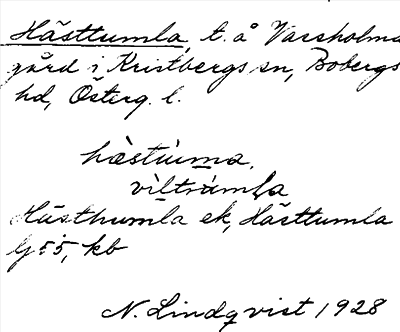 Hästtumla, t. å Varsholma
gård i Kristbergs sn, Bobergs
hd, Österg. l.
hästùma,
Hästhumla ek, Hästtumla
kb
N. Lindqvist 1928